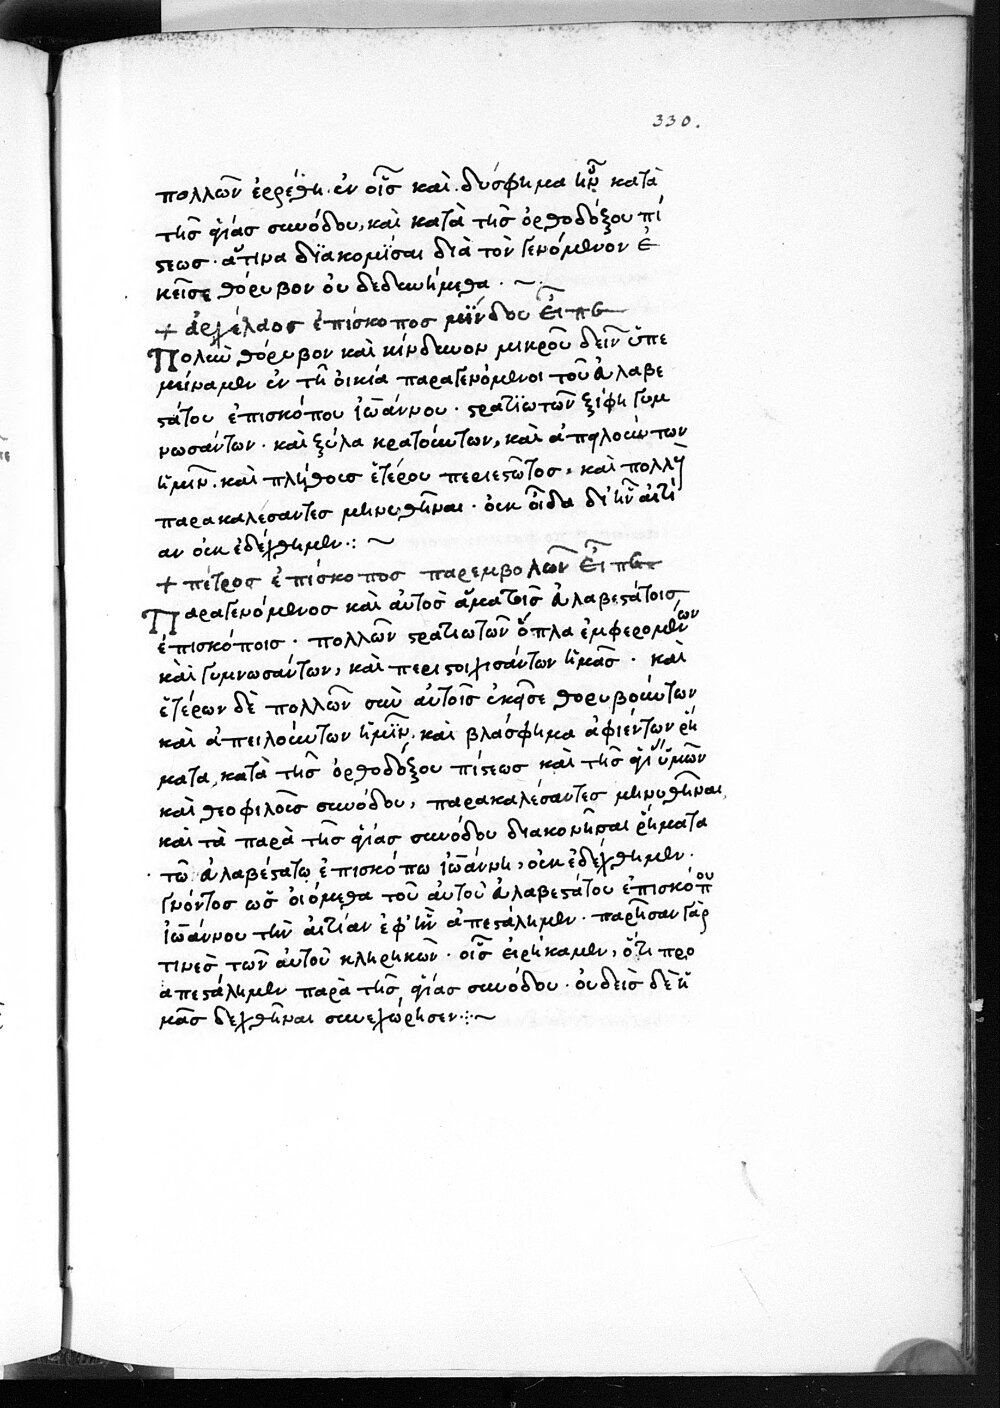 330.
πολλῶν ἐρρέθη. ἐν οἷς καὶ δύσφημα ἦν κατὰ
τῆς ἁγίας συνόδου, καὶ κατὰ τῆς ὀρθοδόξου πί
στεως. ἅτινα διακομίσαι διὰ τὸν γενόμενον ἐ
κεῖσε θόρυβον οὐ δεδυνήμεθα.
+ ἀρχέλαος ἐπίσκοπος μΰνδου εἶπεν
Πολὺν θόρυβον καὶ κίνδυνον μικροῦ δεῖν ὑπε
μείναμεν ἐν τῆ οἰκία παραγενόμενοι τοῦ εὐλαβε
στάτου ἐπισκόπου ἰωάννου. στρατιωτῶν ξίφη γυμ
νωσάντων. καὶ ξύλα κρατούντων, καὶ ἀπειλούντων
ἡμῖν. καὶ πλήθους ἑτέρου περιεστῶτος, καὶ πολλὰ
παρακαλέσαντες μηνυθῆναι. οὐκ οἶδα δι' ἣν αἰτί
αν οὐκ ἐδέχθημεν:
+ πέτρος ἐπίσκοπος παρεμβολῶν εἶπεν
Παραγενόμενος καὶ αὐτὸς ἅμα τοῖς εὐλαβεστάτοις
ἐπισκόποις. πολλῶν στρατιωτῶν ὅπλα ἐμφερομένων
καὶ γυμνωσάντων, καὶ περιστοιχισάντων ἡμᾶς. καὶ
ἑτέρων δὲ πολλῶν σὺν αὐτοῖς ἐκεῖσε θορυβούντων
καὶ ἀπειλούντων ἡμῖν. καὶ βλάσφημα ἀφιέντων ῥή
ματα, κατὰ τῆς ὀρθοδόξου πίστεως καὶ τῆς ἁγί ὑμῶν
καὶ θεοφιλοῦς συνόδου, παρακαλέσαντες μηνυθῆναι,
καὶ τὰ παρὰ τῆς ἁγίας συνόδου διακονῆσαι ῥήματα
τῶ εὐλαβεστάτω ἐπισκόπω ἰωάννη, οὐκ ἐδέχθημεν.
γνόντος ὡς οἰόμεθα τοῦ αὐτοῦ εὐλαβεστάτου ἐπισκόπου
ἰωάννου τὴν αἰτίαν ἐφ' ἣν ἀπεστάλημεν. παρῆσαν γάρ
τινες τῶν αὐτοῦ κληρικῶν. οἷς εἰρήκαμεν, ὅτι προ
απεστάλημεν παρὰ τῆς ἁγίας συνόδου. οὐδεὶς δὲ ἡ
μᾶς δεχθῆναι συνεχώρησεν: